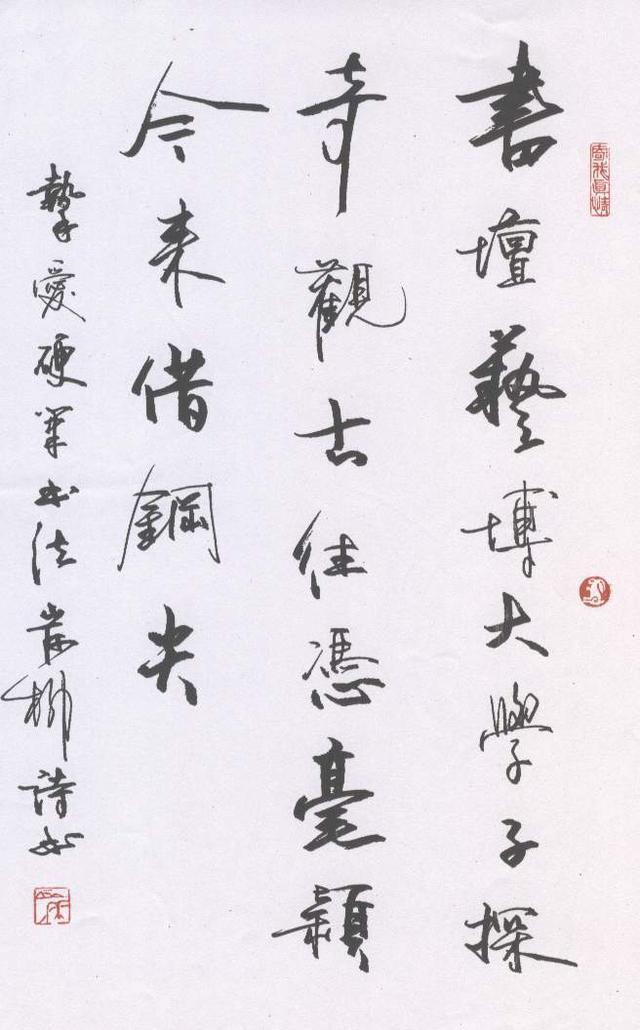 書壇藝博大學子探
奇觀古往憑毫穎
今來借鋼尖
摯愛硬筆書法柳詩書